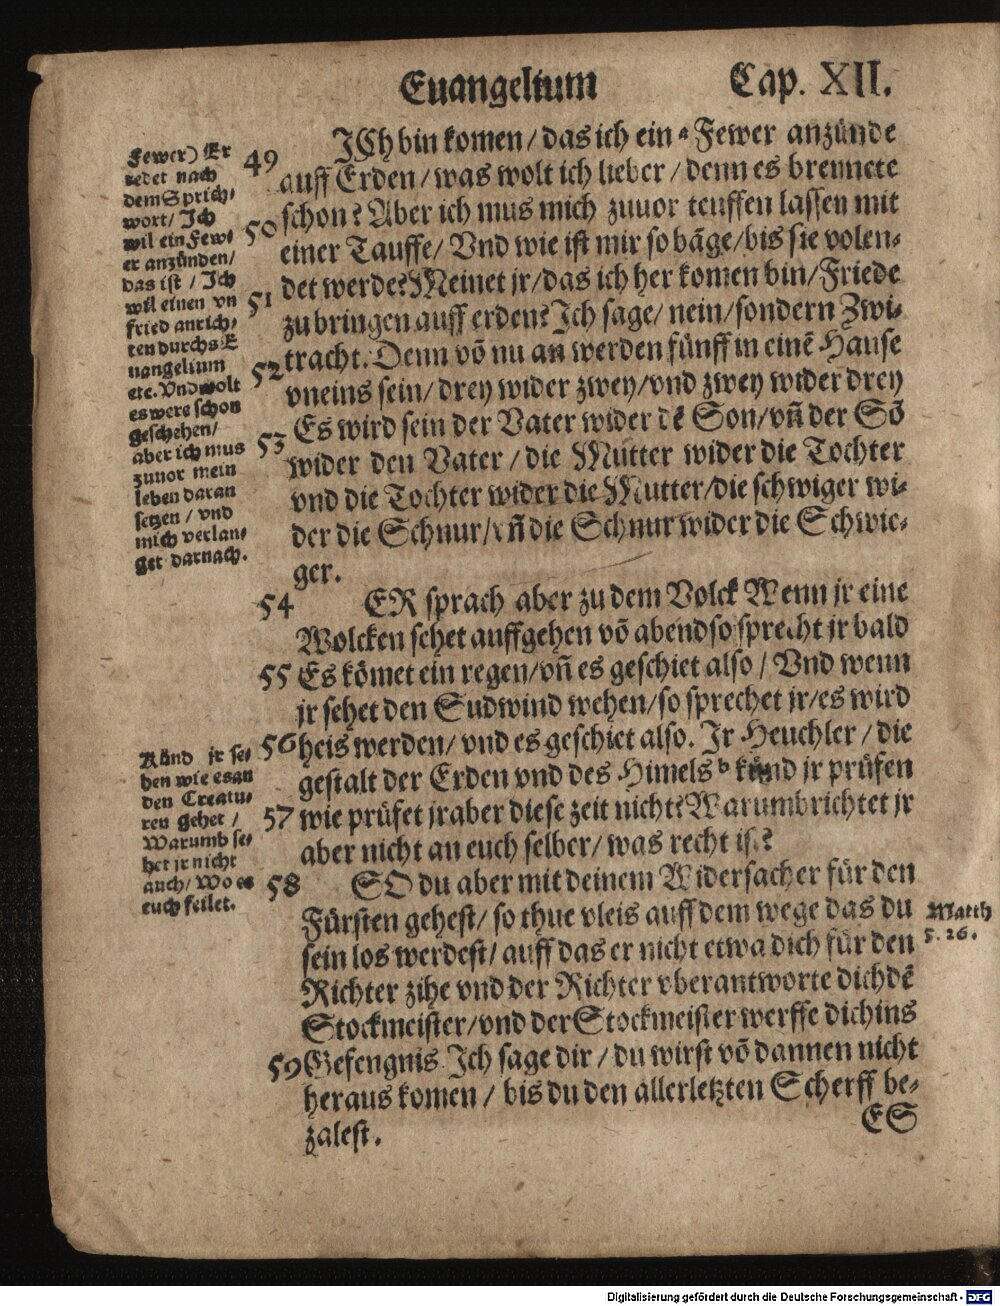 Euangelium Cap. XII.
49 JCh bin komen / das ich ein a Fewer anzünde
auff Erden / was wolt ich lieber / denn es brennete
50 schon? Aber ich mus mich zuuor teuffen lassen mit
einer Tauffe / Vnd wie ist mir so bãge / bis sie volen-
51 det werde? Meinet jr / das ich her komen bin / Friede
zu bringen auff erden? Jch sage / nein / sondern Zwi-
52 tracht. Denn võ nu an werden fünff in einẽ Hause
vneins sein / drey wider zwey / vnd zwey wider drey
53 Es wird sein der Vater wider dẽ Son / vñ der Sõ
wider den Vater / die Mutter wider die Tochter
vnd die Tochter wider die Mutter / die schwiger wi-
der die Schnur / vñ die Schnur wider die Schwie-
ger.
54 ER sprach aber zu dem Volck Wenn jr eine
Wolcken sehet auffgehen võ abend so sprecht jr bald
55 Es kõmet ein regen / vñ es geschiet also / Vnd wenn
jr sehet den Sudwind wehen / so sprechet jr / es wird
56 heis werden / vnd es geschiet also. Jr Heuchler / die
gestalt der Erden vnd des Himels b künd jr prüfen
57 wie prüfet jr aber diese zeit nicht? Warumb richtet jr
aber nicht an euch selber / was recht ist?
58 SO du aber mit deinem Widersacher für den
Fürsten gehest / so thue vleis auff dem wege das du
sein los werdest / auff das er nicht etwa dich für den
Richter zihe vnd der Richter vberantworte dich dẽ
Stockmeister / vnd der Stockmeister werffe dich ins
59 Gefengnis Jch sage dir / du wirst võ dannen nicht
heraus komen / bis du den allerletzten Scherff be-
zalest.
ES
Fewer) Er
redet nach
dem Sprich-
wort / Jch
wil ein Few-
er anzünden /
das ist / Jch
wil einen vn
fried anrich-
ten durchs E
uangelium
etc. Vnd wolt
es were schon
geschehen /
aber ich mus
zuuor mein
leben daran
setzen / vnd
mich verlan-
get darnach.
Künd jr se-
hen wie es an
den Creatu-
ren gehet /
Warumb se-
het jr nicht
auch / Wo es
euch feilet.
Matth
5. 26.
Digitalisierung gefördert durch die Deutsche Forschungsgemeinschaft - DFG